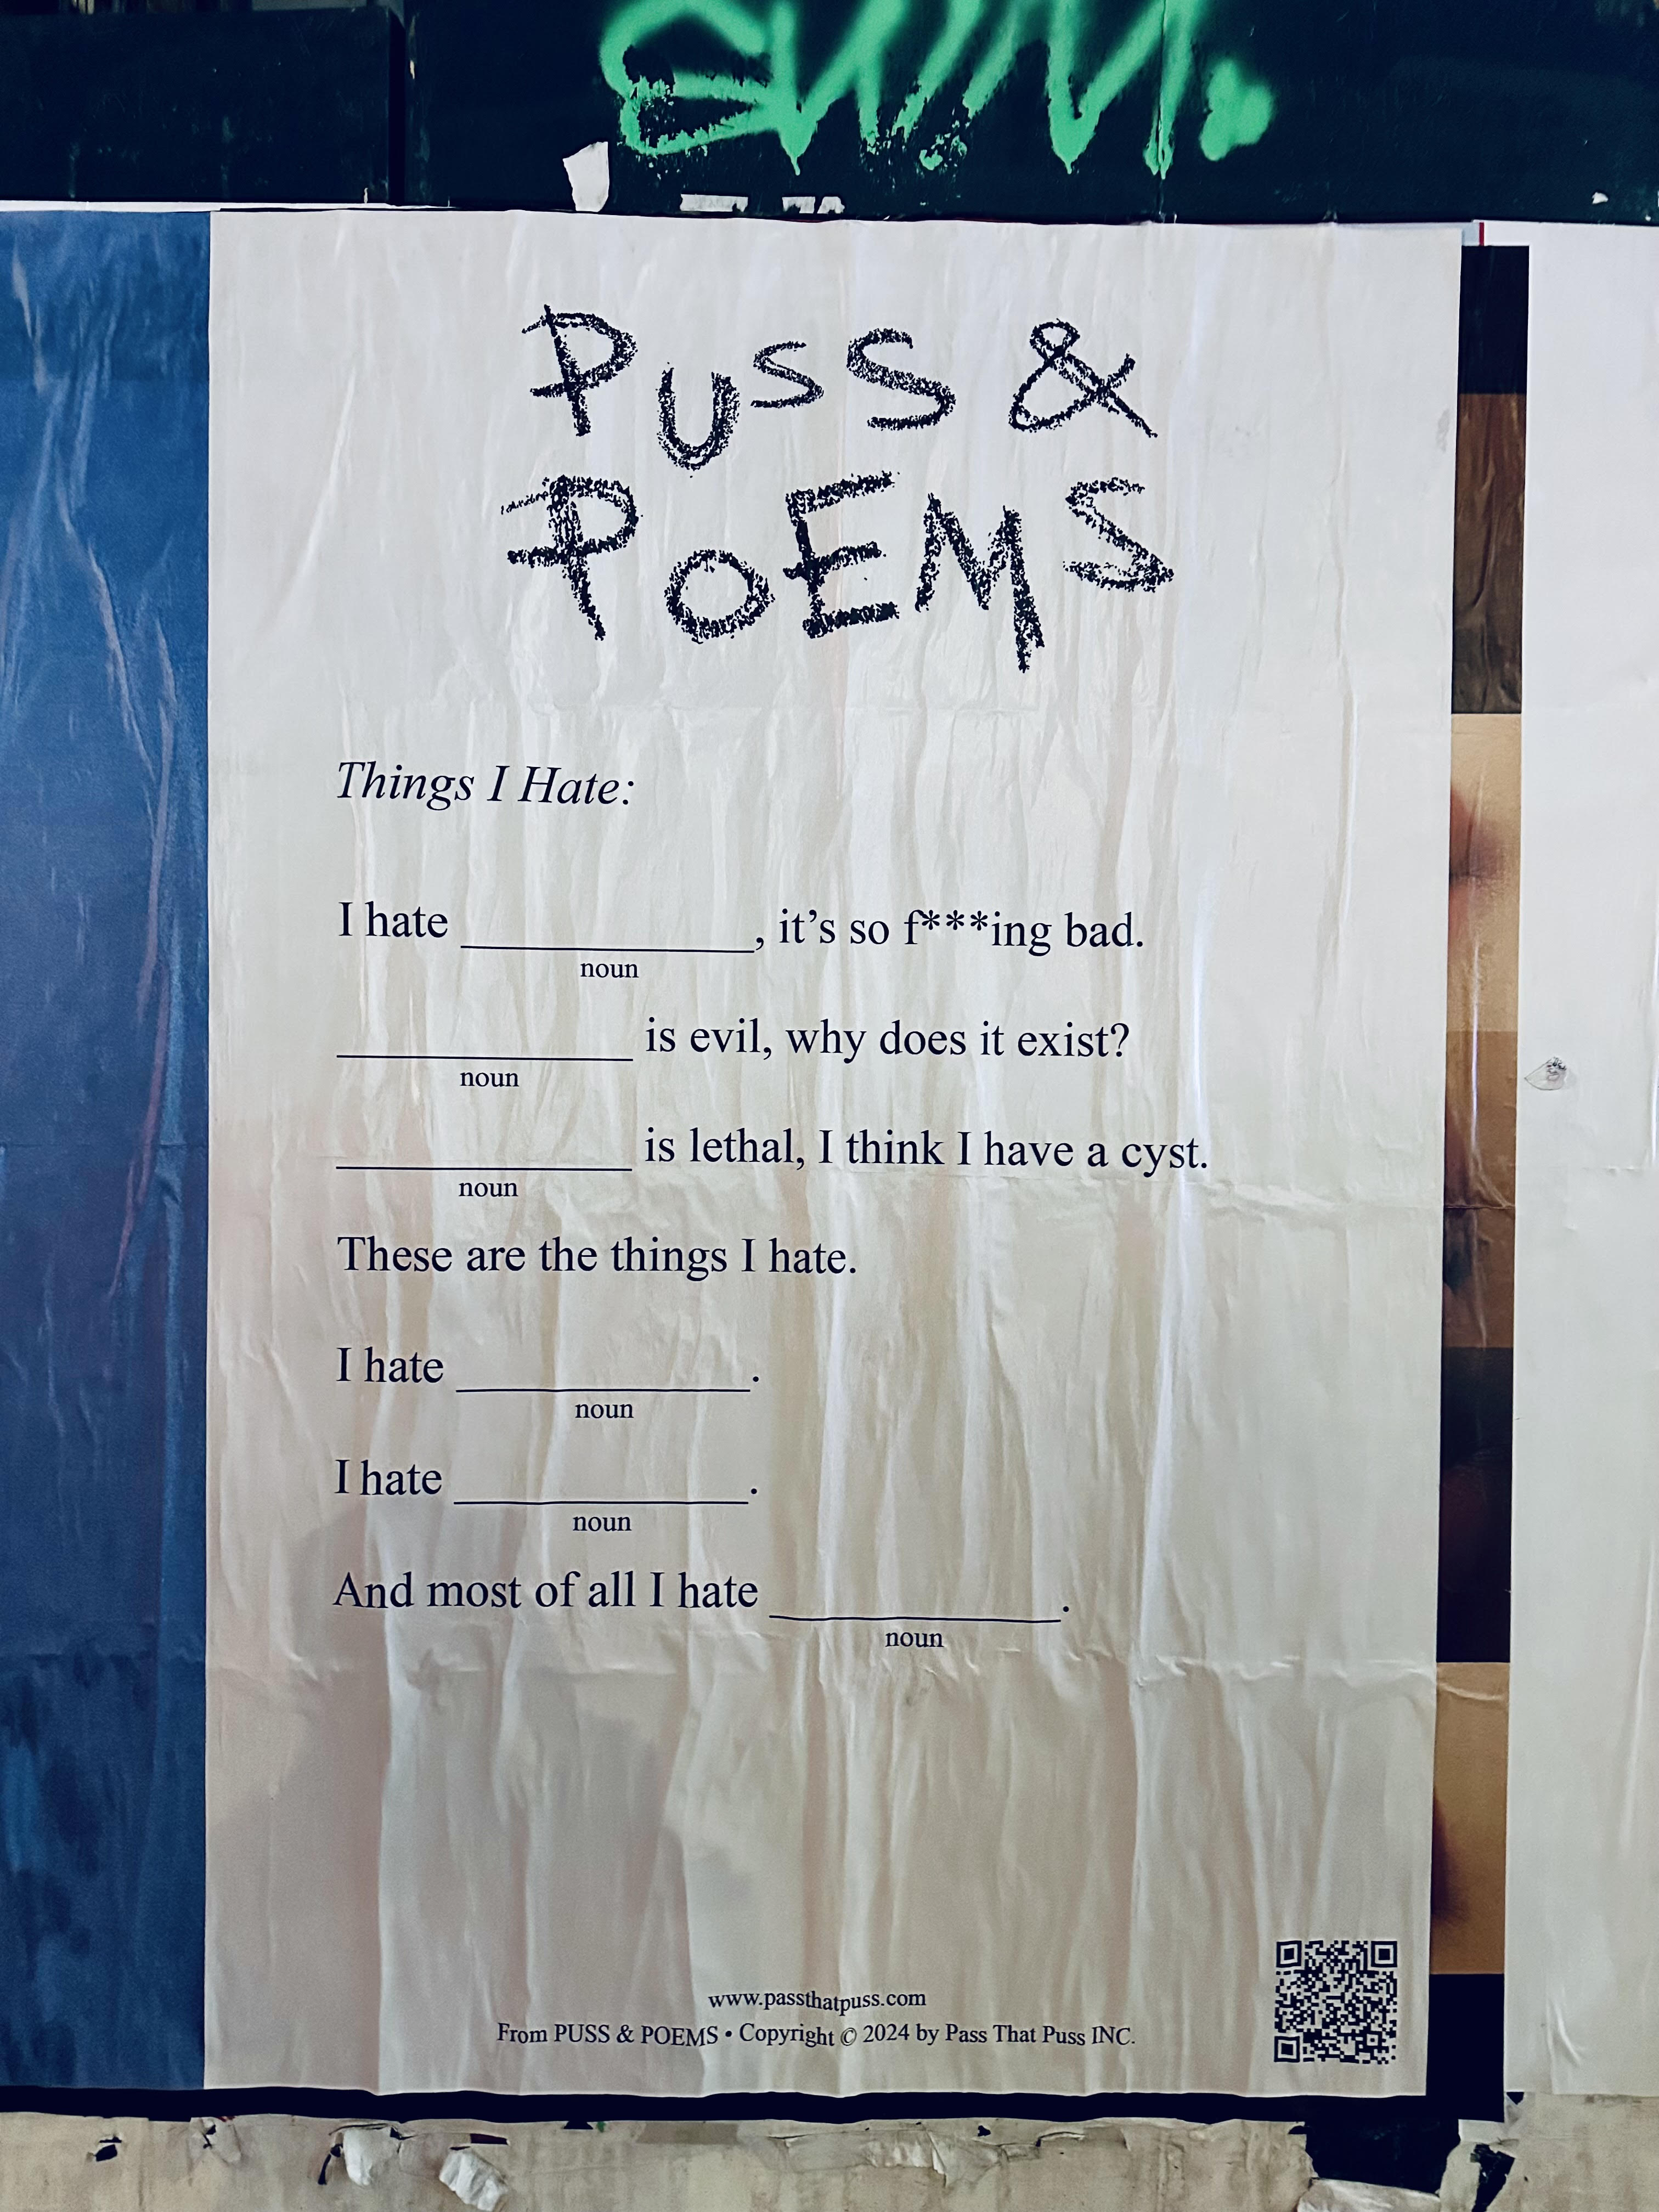 PUSS &
POEMS
Things I Hate:
I hate ____________, it's so f***ing bad.
noun
____________ is evil, why does it exist?
noun
____________ is lethal, I think I have a cyst.
noun
These are the things I hate.
I hate ____________.
noun
I hate ____________.
noun
And most of all I hate ____________.
noun
www.passthatpuss.com
From PUSS & POEMS • Copyright © 2024 by Pass That Puss INC.